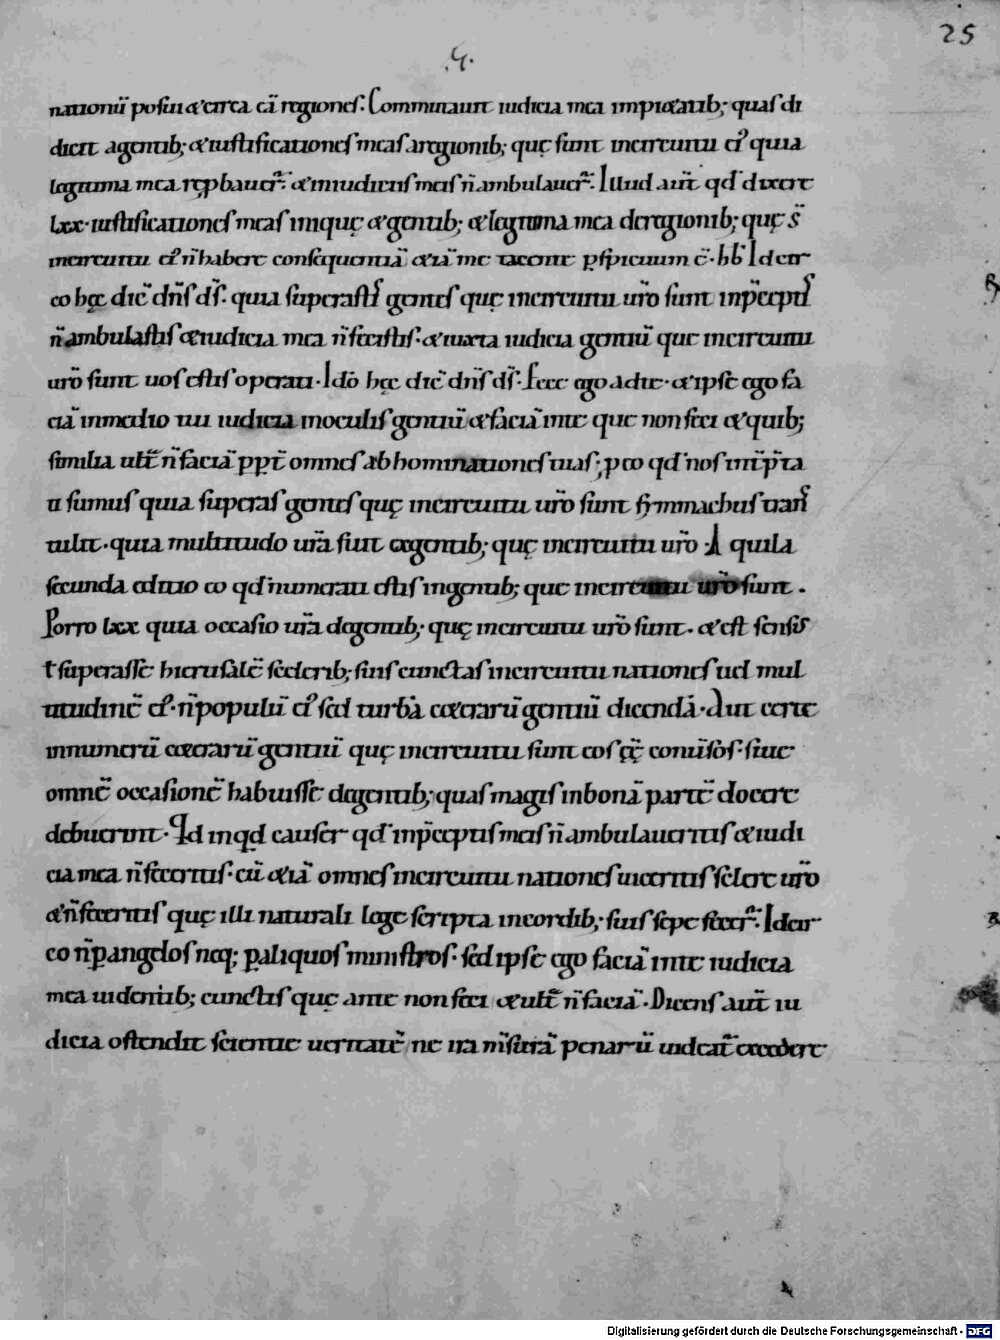 25
.4.
nationū posui & circa eā regiones. Commutauit iudicia mea impietatib; quas di
dicit agentib; & iustificationes meas aregionib; quę sunt incircuitu ei᷒ quia
legitima mea ręp̱bauer̄. & iniudiciis meis n̄ ambulauer̄. Illud aut̄ qd̄ dixere
lxx. iustificationes meas iniquę & gentib; & legitima mea deregionib; quę s̄
incircuitu ei᷒ n̄ habere consequentiā &iā me tacente p̱spicuum ē. hb̄ Idcir
co hęc dic̄ dn̄s ds̄. quia superastis gentes quę incircuitu ur̄o sunt inp̄ceptis
n̄ ambulastis & iudicia mea n̄ fecistis. & iuxta iudicia gentiū que incircuitu
ur̄o sunt uos estis operati. Idō hęc dic̄ dn̄s ds̄. Ecce ego adte. & ipse ego fa
ciā inmedio tui iudicia inoculis gentiū & faciā inte que non feci & quib;
similia ult̄ n̄ faciā pp̱t̄ omnes abhominationes tuas; p̱ eo qd̄ nos int̄p̄ta
ti sumus quia superas gentes quę incircuitu ur̄o sunt symmachus trans
tulit. quia multitudo ur̄a fuit exgentib; quę incircuitu ur̄o. Aquila
secunda editio eo qd̄ numerati estis ingentib; que incircuitu ur̄o sunt.
Porro lxx quia occasio ur̄a degentib; quę incircuitu ur̄o sunt. & est sensus
ł superasse hierusalē scelerib; suis cunctas incircuitu nationes uel mul
titudinē ei᷒. n̄ populū ei᷒ sed turbā ceterarū gentiū dicendā. Aut certe
innumerū ceterarū gentiū quę incircuitu sunt eos eē conuersos. siue
omnē occasionē habuisse degentib; quas magis inbonā partē docere
debuerint. Id inqd̄ causer qd̄ inp̄ceptis meis n̄ ambulaueritis & iudi
cia mea n̄ feceritis. cū &iā omnes incircuitu nationes uiceritis scelere ur̄o
& n̄ feceritis quę illi naturali lege scripta incordib; suis sepe fecer̄. Idcir
co n̄ p̱ angelos neq; p̱ aliquos ministros. sed ipse ego faciā inte iudicia
mea uidentib; cunctis quę ante non feci & ult̄ n̄ faciā. Dicens aut̄ iu
dicia ostendit scientie ueritatē ne ira m̄surā penarū uideat̄ excedere
Digitalisierung gefördert durch die Deutsche Forschungsgemeinschaft - DFG